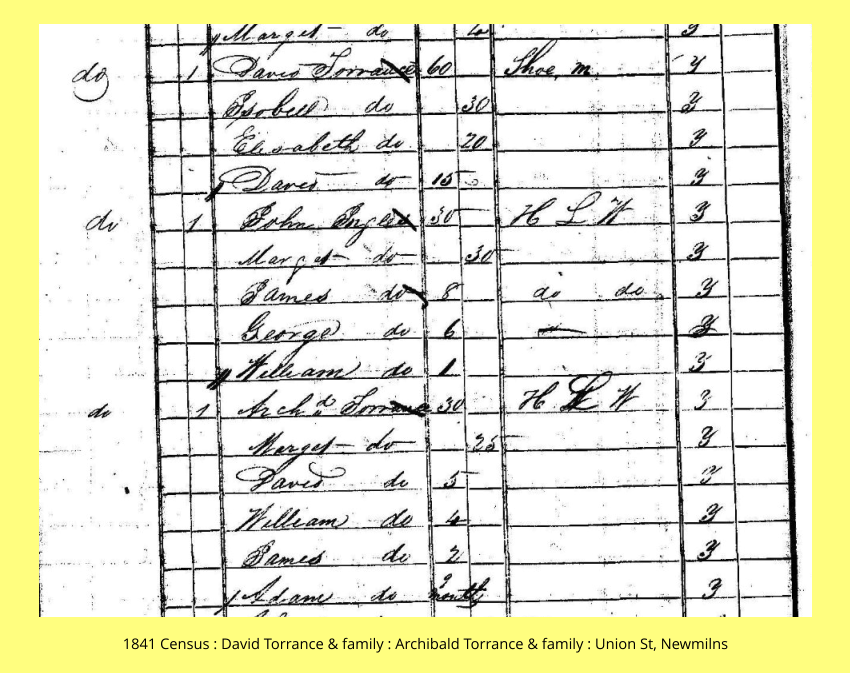 Marget do
do 1 David Torrance 60 Shoe, m. y
Isobell do 30 y
Elisabeth do 20 y
David do 15 y
do 1 John Inglis 30 H L W y
Marget do 30 y
James do 8 do do y
George do 6 y
William do 1 y
do 1 Archd Torrance 30 H L W y
Marget do 25 y
David do 5 y
William do 4 y
James do 2 y
Adam do 9 months y
1841 Census : David Torrance & family : Archibald Torrance & family : Union St, Newmilns